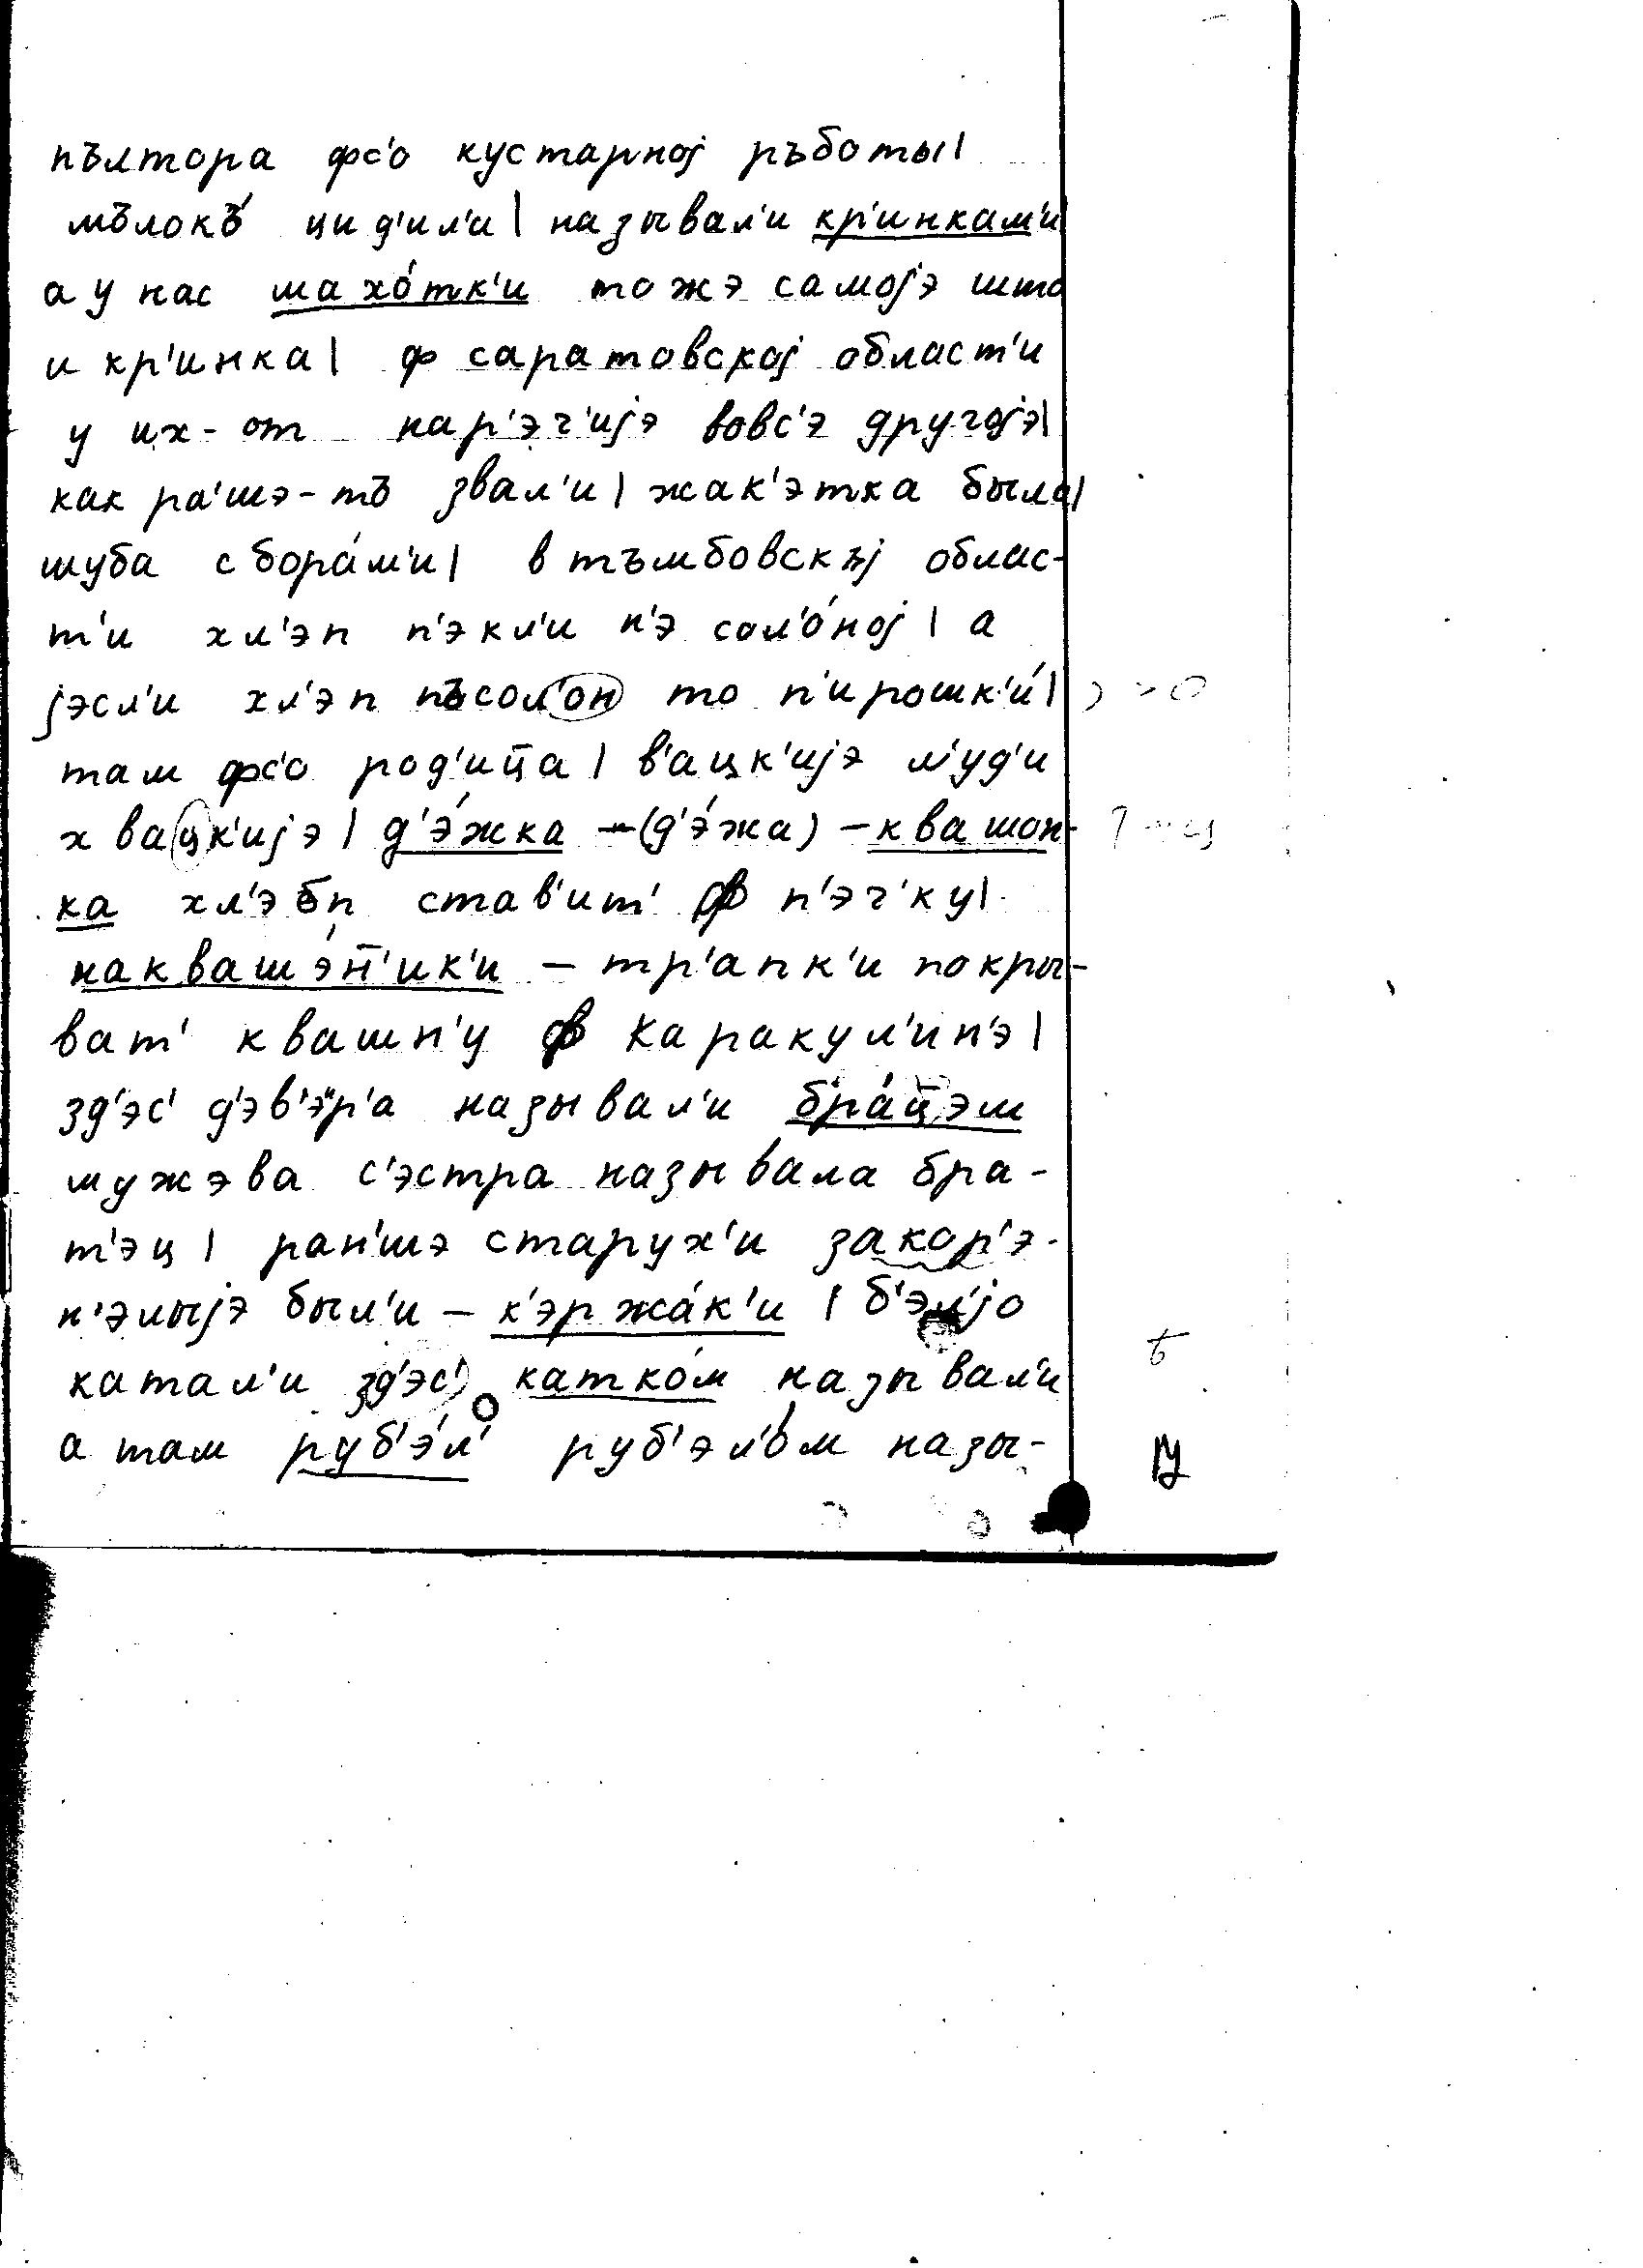 пълтора фс'о кустарној ръботы|
мълокъ́ цид'ил'и| называл'и кр'инкам'и
а у нас махо́тк'и тожэ самојэ што
и кр'инка| ф саратовској област'и
у их-от нар'эч'ијэ вовс'э другојэ|
как ра'шэ-тъ звал'и| жак'этка была|
шуба сбора́м'и| в тъмбовскъј облас-
т'и хл'эп п'экл'и н'э сол'о́ној| а
јэсл'и хл'эп пъсол'он то п'ирошк'и́|
там фс'о род'ица| в'ацк'ијэ л'уд'и
хвацк'ијэ| д'э́жка -(д'э́жа) -квашон-
ка хл'эбп став'ит' ф п'эч'ку|
наквашэ́н̅'ик'и - тр'апк'и покры-
ват' квашн'у ф каракул'ин'э|
зд'эс' д'эв'эр'а называл'и бра́ц̅эм
мужэва с'эстра называла бра-
т'эц| ран'шэ старух'и закор'э-
н'элыјэ был'и - к'эржа́к'и | б'эл'јо
катал'и зд'эс' катко́м называл'и
а там руб'э́л' руб'эл'о́м назы-